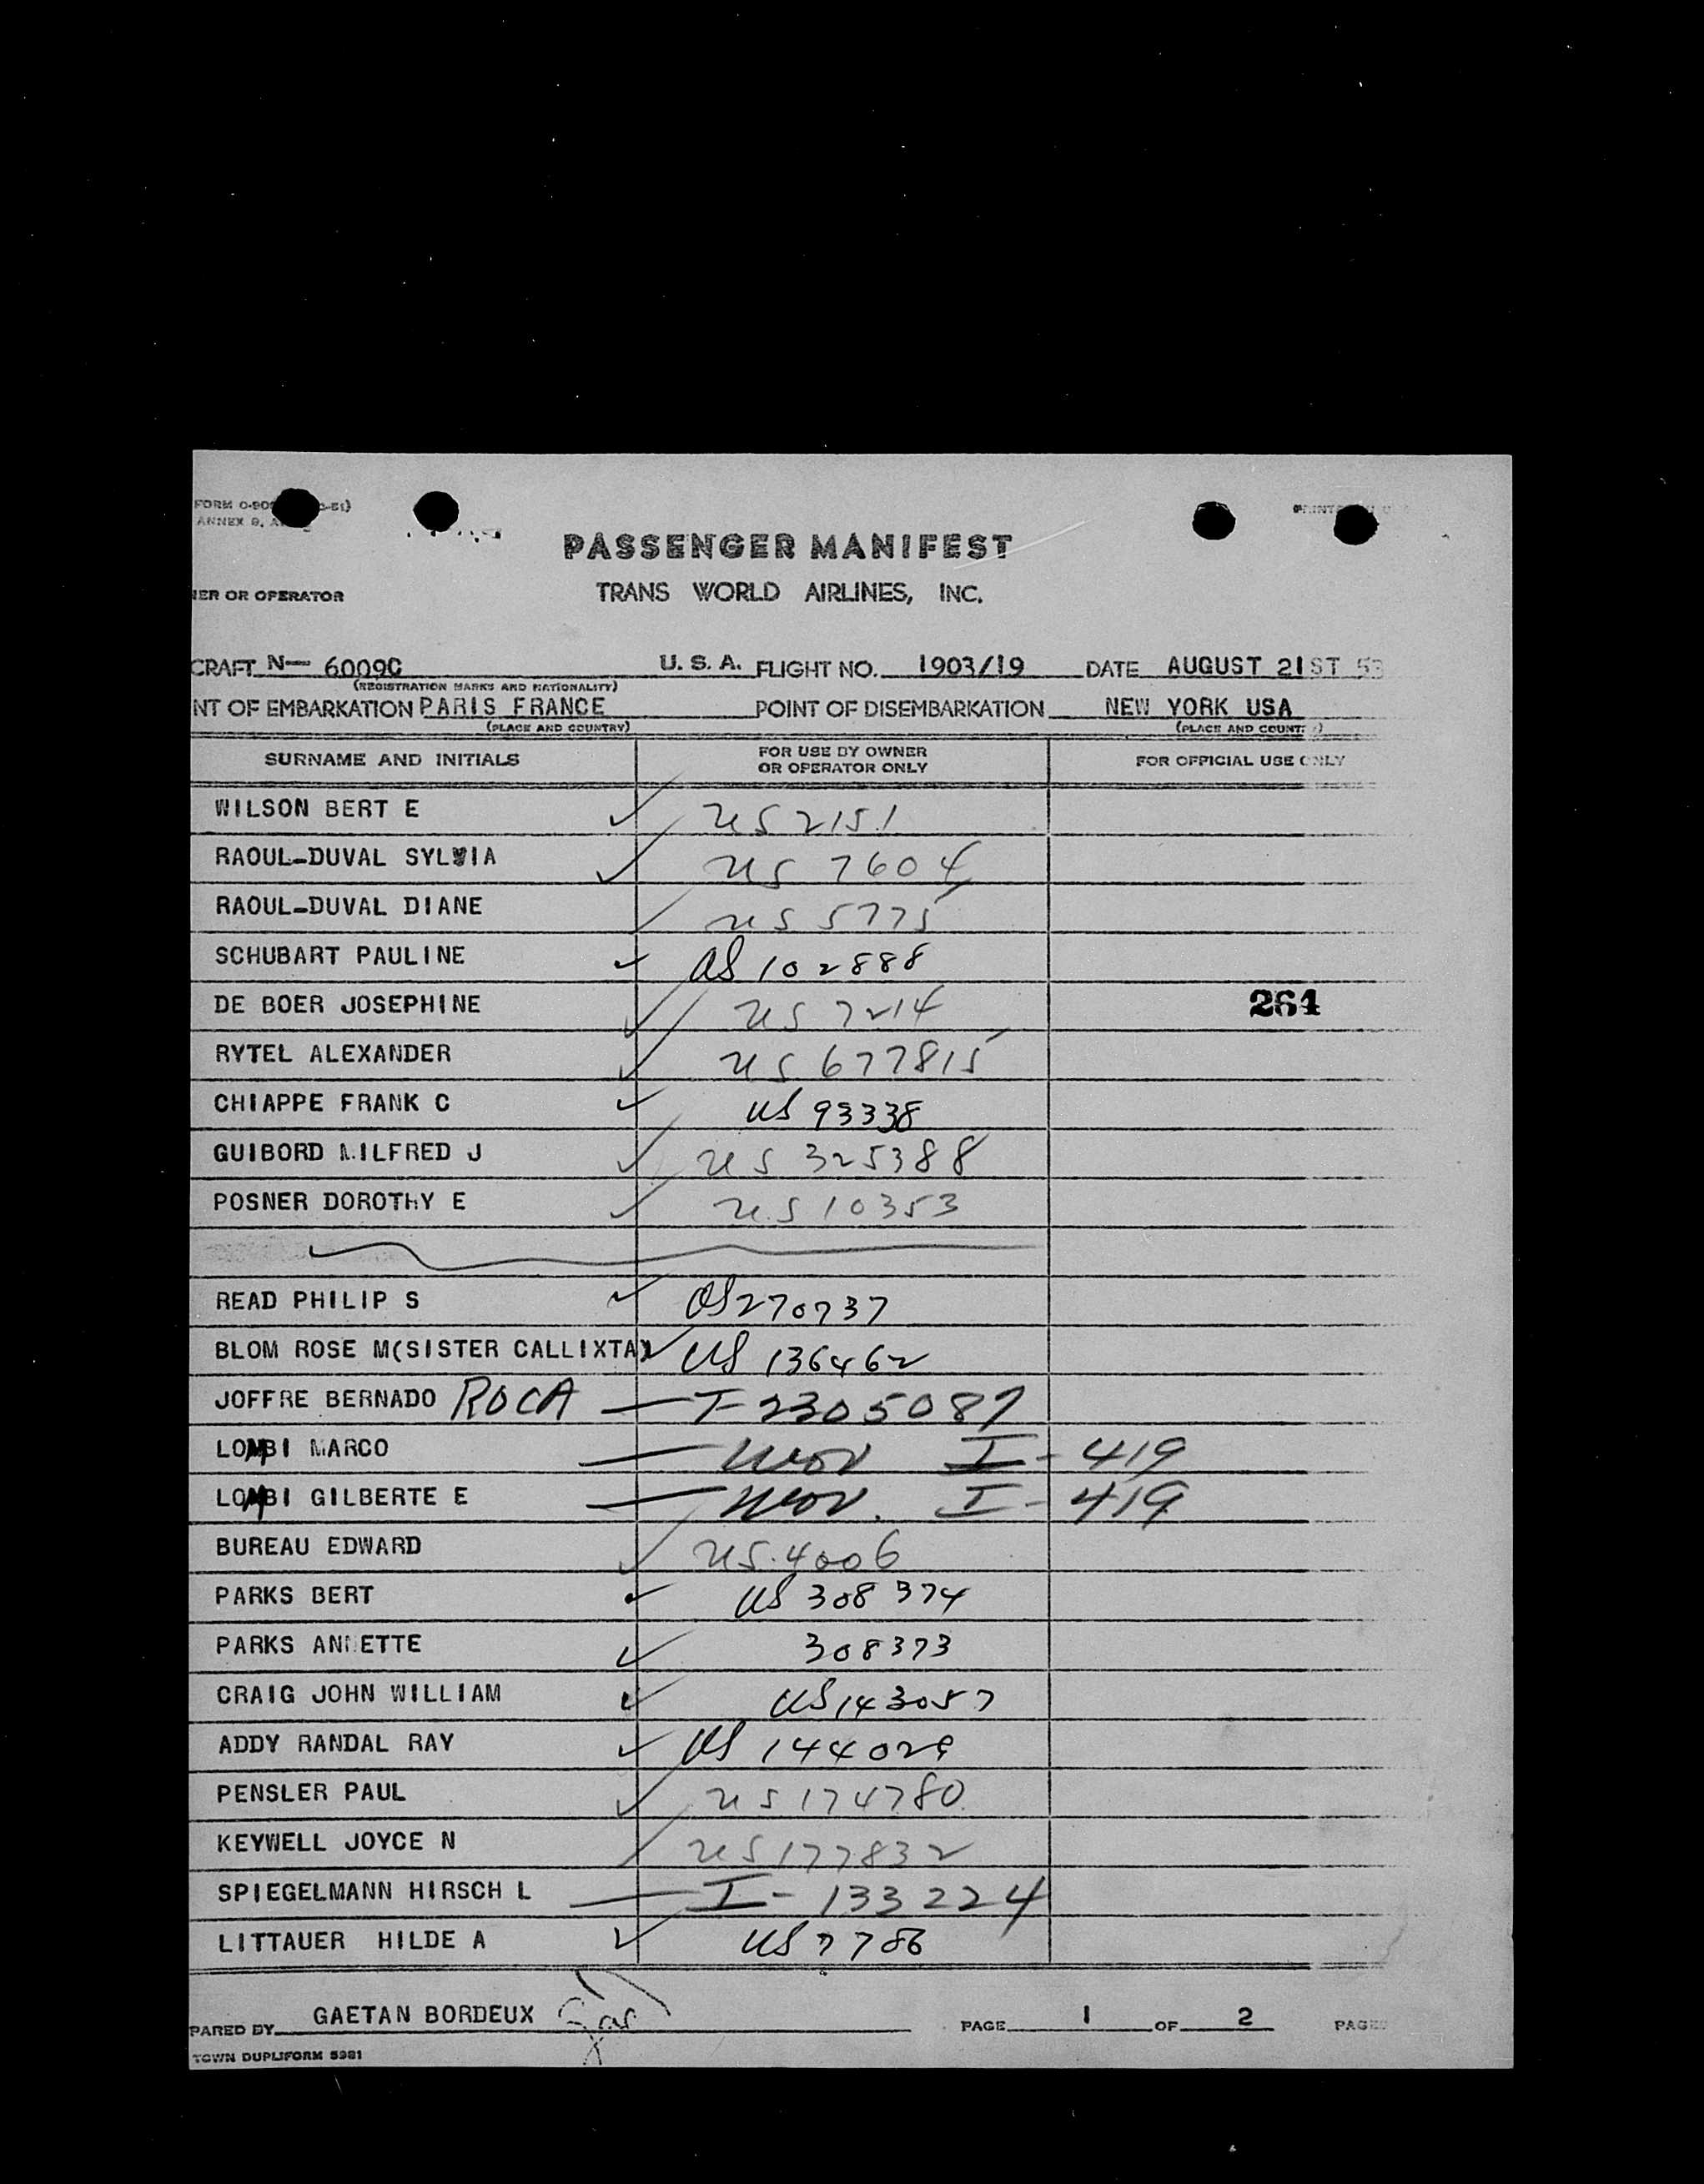 FORM O-90
ANNEX 9, A
PASSENGER MANIFEST
NER OR OPERATOR TRANS WORLD AIRLINES, INC.
CRAFT N- 6009C U. S. A. FLIGHT NO. 1903/19 DATE AUGUST 21ST 53
(REGISTRATION MARKS AND NATIONALITY)
NT OF EMBARKATION PARIS FRANCE POINT OF DISEMBARKATION NEW YORK USA
(PLACE AND COUNTRY) (PLACE AND COUNT
SURNAME AND INITIALS FOR USE BY OWNER OR OPERATOR ONLY FOR OFFICIAL USE ONLY
WILSON BERT E US 2151
RAOUL-DUVAL SYLVIA US 7604
RAOUL-DUVAL DIANE US 5775
SCHUBART PAULINE US 102888
DE BOER JOSEPHINE US 7214 264
RYTEL ALEXANDER US 677815
CHIAPPE FRANK C US 93338
GUIBORD MILFRED J US 325388
POSNER DOROTHY E US 10353
READ PHILIP S US 270737
BLOM ROSE M(SISTER CALLIXTA) US 136462
JOFFRE BERNADO ROCA I-2305087
LOMBI MARCO I-419
LOMBI GILBERTE E I-419
BUREAU EDWARD US.4006
PARKS BERT US 308374
PARKS ANNETTE 308373
CRAIG JOHN WILLIAM US 143057
ADDY RANDAL RAY US 144029
PENSLER PAUL US 174780
KEYWELL JOYCE N US 177832
SPIEGELMANN HIRSCH L I-133224
LITTAUER HILDE A US 7786
PARED BY GAETAN BORDEUX PAGE 1 OF 2 PAGES
TOWN DUPLIFORM 5981